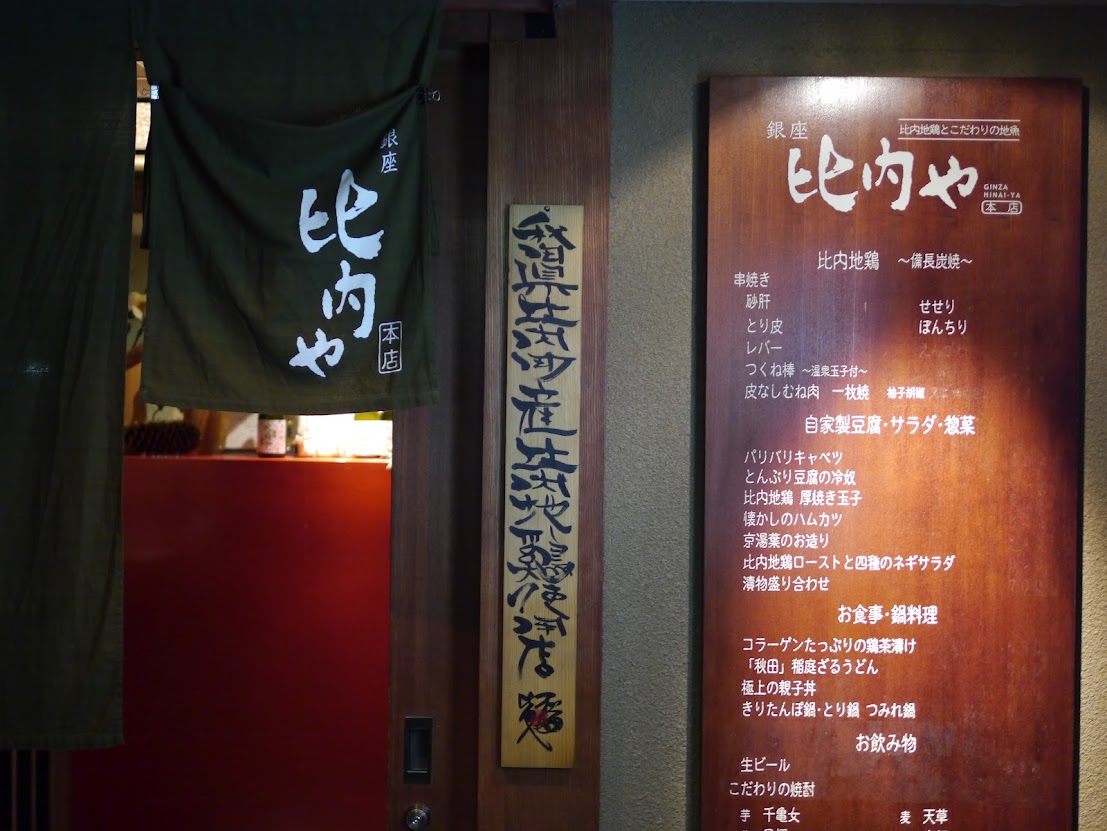 銀座
比内や
本店
秋田県比内町産比内地鶏使用店
銀座
比内地鶏とこだわりの地魚
比内や
GINZA
HINAI-YA
本店
比内地鶏 ～備長炭焼～
串焼き
砂肝 せせり
とり皮 ぼんちり
レバー
つくね棒 ～温泉玉子付～
皮なしむね肉 一枚焼 柚子胡椒
自家製豆腐・サラダ・惣菜
パリパリキャベツ
とんぶり豆腐の冷奴
比内地鶏 厚焼き玉子
懐かしのハムカツ
京湯葉のお造り
比内地鶏ローストと四種のネギサラダ
漬物盛り合わせ
お食事・鍋料理
コラーゲンたっぷりの鶏茶漬け
「秋田」稲庭ざるうどん
極上の親子丼
きりたんぽ鍋・とり鍋 つみれ鍋
お飲み物
生ビール
こだわりの焼酎
芋 千亀女 麦 天草